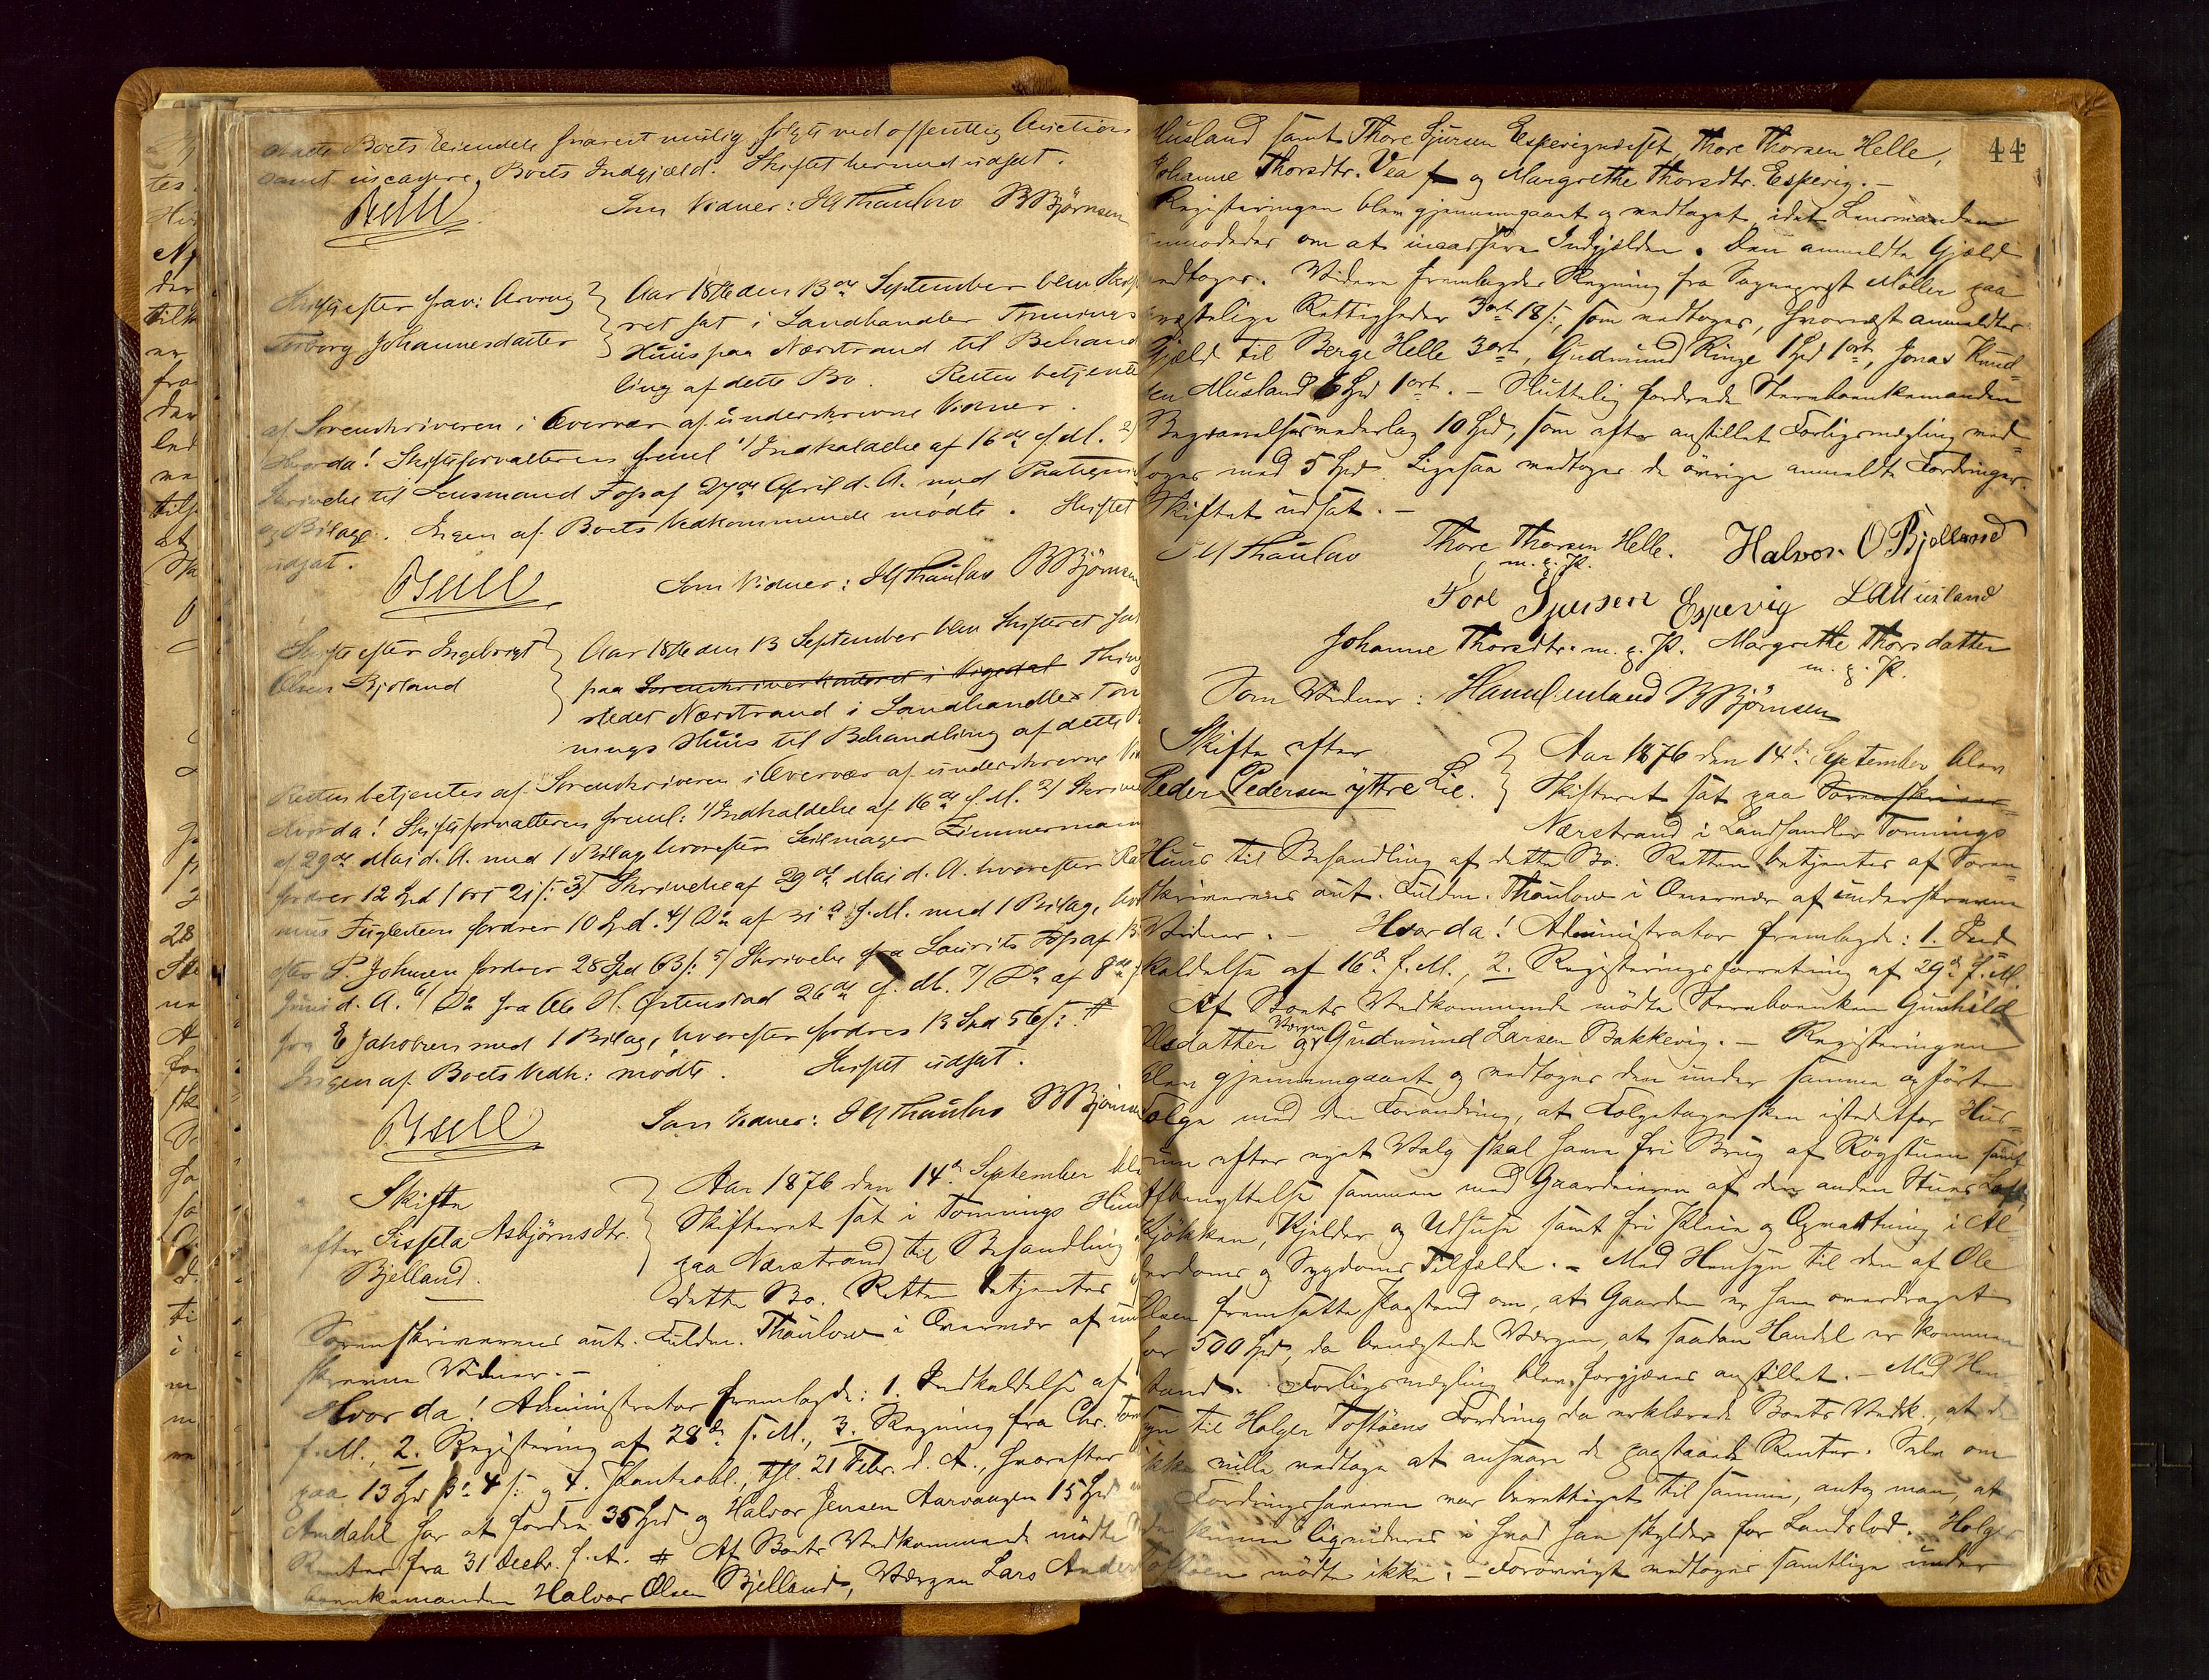 Boets Eiendele snarest mulig solgt ved offentlig Auction
samt incassere Boets Indgjæld. Skiftet hermed udsat.
Bull
Som Vidner: HThaulow BBjörnsen
Skifte efter frav: Arving
Torborg Johannesdatter
Aar 1876 den 13de September blev Skif
ret sat i Landhandler Tonnings
Huus paa Nærstrand til Behand
ling af dette Bo. Retten betjentes
af Sorenskriveren i Overvær af underskrevne Vidner.
Hvorda! Skifteforvalteren freml 1/ Indkaldelse af 16de f. M. 2/
Skrivelse til Lensmand Foss af 27de April d. A. med Paategn
og Bilage. Ingen af Boets Vedkommende mødte. Skiftet
udsat.
Bull
Som Vidner: HThaulow BBjörnsen
Skifte efter Ingebrigt
Olsen Bjorland
Aar 1876 den 13 September blev Skifteret sat
paa Sorenskriverkontoret i Vigedal Thing
stedet Nærstrand i Landhandler Ton
nings Huus til Behandling af dette
Retten betjentes af Sorenskriveren i Overvær af underskrevne
Hvorda! Skifteforvalteren freml: 1/ Indkaldelse af 16de f. M. 2/ Skrivel
af 29de Mai d. A. med 1 Bilag, hvorefter Seilmager Zimmermann
fordrer 12 Spd 1 ort 21 s: 3/ Skrivelse af 29de Mai d. A. hvorefter
Fuglesteen fordrer 10 Spd. 4/ Do af 31te f. M. med 1 Bilag, hvor
efter P. Johnsen fordrer 28 Spd 63 s: 5/ Skrivelse fra Laurits Foss af
Juni d. A. 6/ Do fra Ole H. Østenstad 26de f. M. 7/ Do af 8de
fra E Jakobsen med 1 Bilag, hvorefter fordres 13 Spd 56 s:. #
Ingen af Boets Vedk: mødte. Skiftet udsat.
Bull
Som Vidner: HThaulow BBjörnsen
Skifte
efter Sissela Asbjörnsdtr.
Bjelland.
Aar 1876 den 14de September blev
Skifteret sat i Tonnings Huus
paa Nærstrand til Behandling
dette Bo. Retten betjentes
Sorenskriverens aut. Fuldm. Thaulow i Overvær af un
skrevne Vidner. –
Hvor da! Administrator fremlagde: 1. Indkaldelse af
f. M., 2. Registering af 28de f. M., 3. Regning fra Chr. Ton
paa 13 Spd 3o 4 s: og 4. Panteobl., thl. 21 Febr. d. A., hvorefter
Amdahl har at fordre 35 Spd og Halvor Jensen Aarvaagen 15 Spd
Renter fra 31 Decbr. f. A. # Af Boets Vedkommende mødte
boenkemanden Halvor Olsen Bjelland, Værgen Lars Anders
44
Musland samt Thore Sjursen Thore Thorsen Helle,
Johanne Thorsdtr. Vea og Margrethe Thorsdtr. Espevig. –
Registeringen blev gjennemgaaet og vedtaget, idet Lensmanden
anmodedes om at incassere Indgjælden. Den anmeldte Gjæld
vedtoges. Videre fremlagdes Regning fra Sogneprest Möller paa
præstelige Rettigheder 3ort 18 s:, som vedtoges, hvornæst anmeldtes
Gjæld til Berge Helle 3ort, Gudmund Ringe 1 Spd 1ort, Jonas Knud=
sen Musland 6 Spd 1ort. – Sluttelig fordrede Stervboenkemanden
Begravelsesvederlag 10 Spd, som efter anstillet Forligsmægling ved=
toges med 5 Spd. Ligesaa vedtoges de övrige anmeldte Fordringer.
Skiftet udsat. –
HThaulow Thore Thorsen Helle. Halvor O Bjelland
m. p. P.
Tore Sjursen Espevig LAMusland
Johanne Thorsdtr. m. p. P. Margrethe Thorsdatter
m. p. P.
Som Vidner: BBjörnsen
Skifte efter
Peder Pedersen yttre Lie.
Aar 1876 den 14de September blev
Skifteret sat paa Sorenskriver
Nærstrand i Landhandler Tonnings
Huus til Behandling af dette Bo. Retten betjentes af Soren=
skriverens aut. Fuldm. Thaulow i Overvær af underskrevne
Vidner. – Hvor da! Administrator fremlagde: 1. Ind=
kaldelse af 16de f. M., 2. Registeringsforretning af 29de f. M.
Af Boets Vedkommende mödte Stervboenken Gunhild
Olsdatter og Værgen Gudmund Larsen Bakkevig. – Registeringen
blev gjennemgaaet og vedtoges den under samme opförte
Folge med den Forandring, at Folgetagersken istedetfor Hus=
rum efter eget Valg skal have fri Brug af Rögstuen samt
Afbenyttelse sammen med Gaardeieren af den anden Stues Loft,
Kjökken, Kjelder og Udhuse samt fri Pleie og Opvartning i Al=
derdoms og Sygdoms Tilfælde. – Med Hensyn til den af Ole
Olsen fremsatte Paastand om, at Gaarden er ham overdraget
for 500 Spd, da benegtede Værgen, at saadan Handel er kommen
istand. Forligsmægling blev forgjæves anstillet. – Med Hen
syn til Holger Toftöens Fordring da erklærede Boets Vedk., at de
ikke ville vedtage at ansvare de paastaaede Renter. Selv om
Fordringshaveren var berettiget til samme, antog man, at
de kunne ligvideres i hvad han skylder for Landslod. Holger
Toftöen mödte ikke. – Forövrigt vedtoges samtlige under